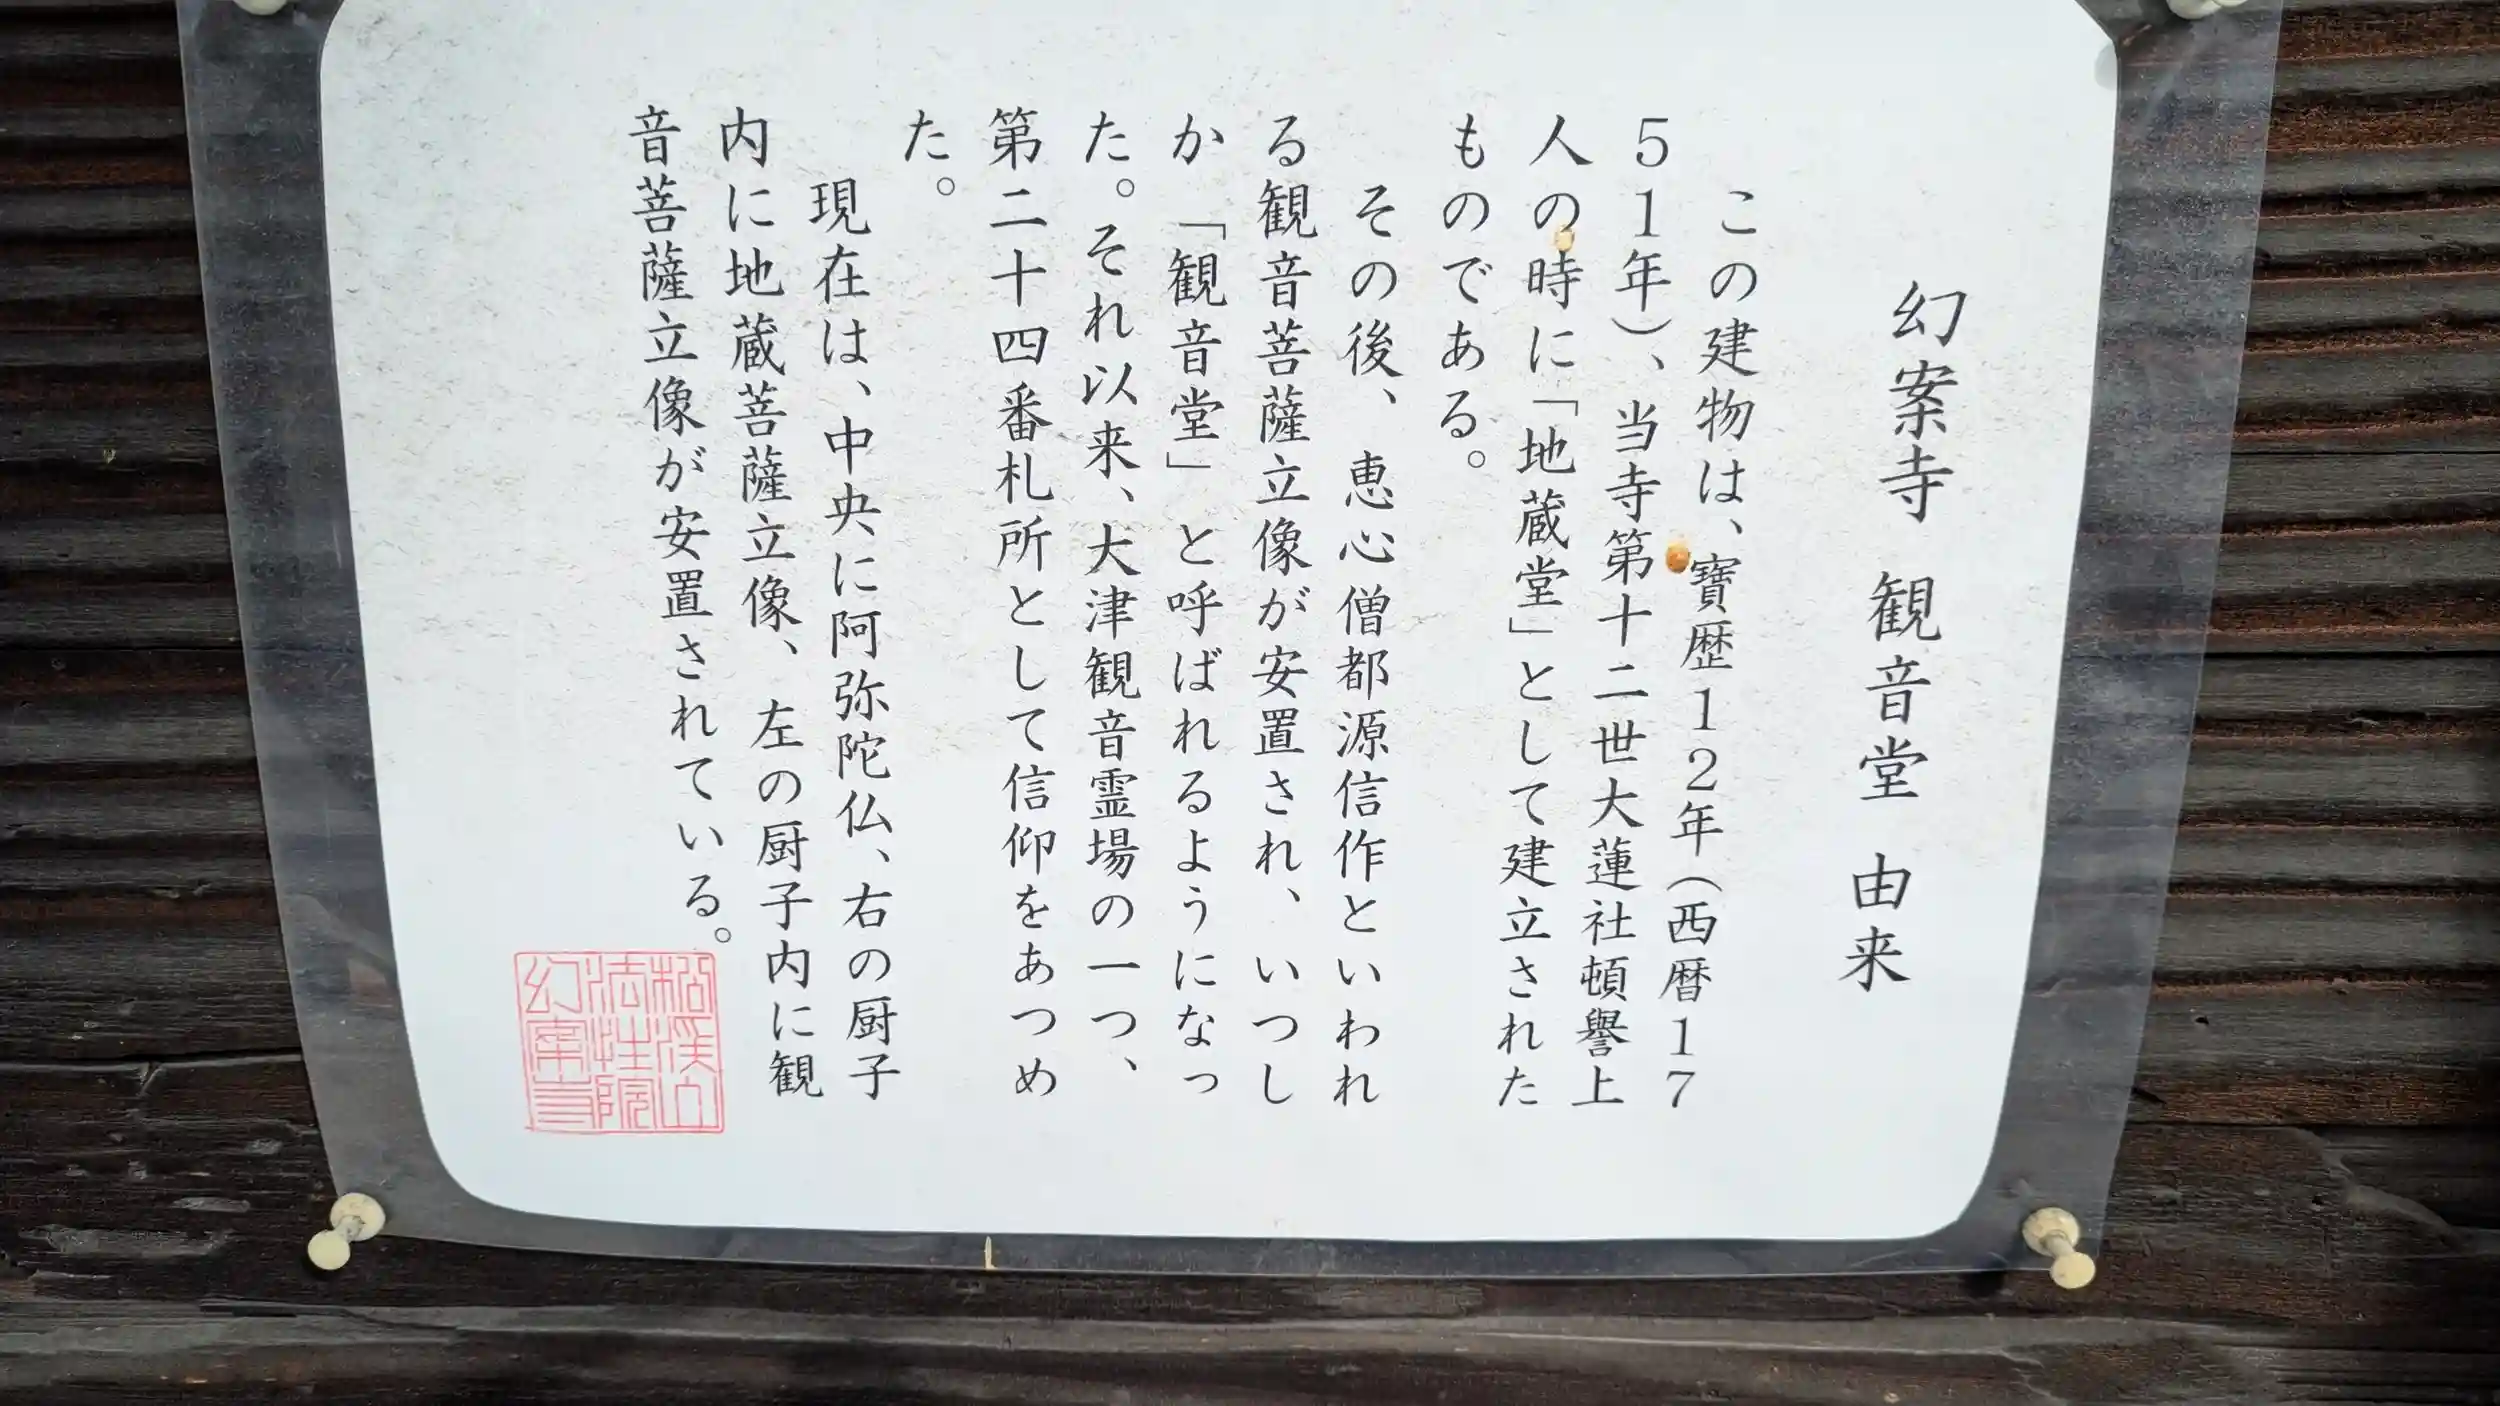 幻案寺 観音堂 由来
この建物は、寶歴12年(西暦17
51年)、当寺第十二世大蓮社頓譽上
人の時に「地蔵堂」として建立された
ものである。
その後、恵心僧都源信作といわれ
る観音菩薩立像が安置され、いつし
か「観音堂」と呼ばれるようになっ
た。それ以来、大津観音霊場の一つ、
第二十四番札所として信仰をあつめ
た。
現在は、中央に阿弥陀仏、右の厨子
内に地蔵菩薩立像、左の厨子内に観
音菩薩立像が安置されている。
法性院
幻案寺